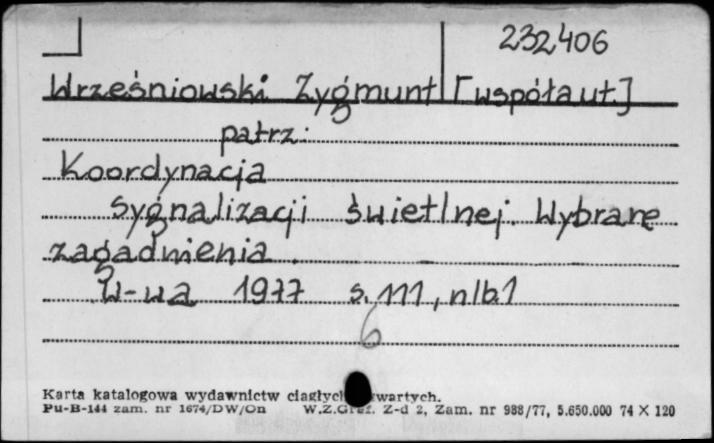 232406
Wrześniowski Zygmunt [współaut.]
patrz:
Koordynacja
sygnalizacji świetlnej. Wybranę
zagadnienia.
W-wa 1977 s. 111, nlb.1
6
Karta katalogowa wydawnictw ciągłych
Pu-B-144 zam. nr 1674/DW/On W.Z.Graf. Z-d 2, Zam. nr 988/77, 5.650.000 74 X 120